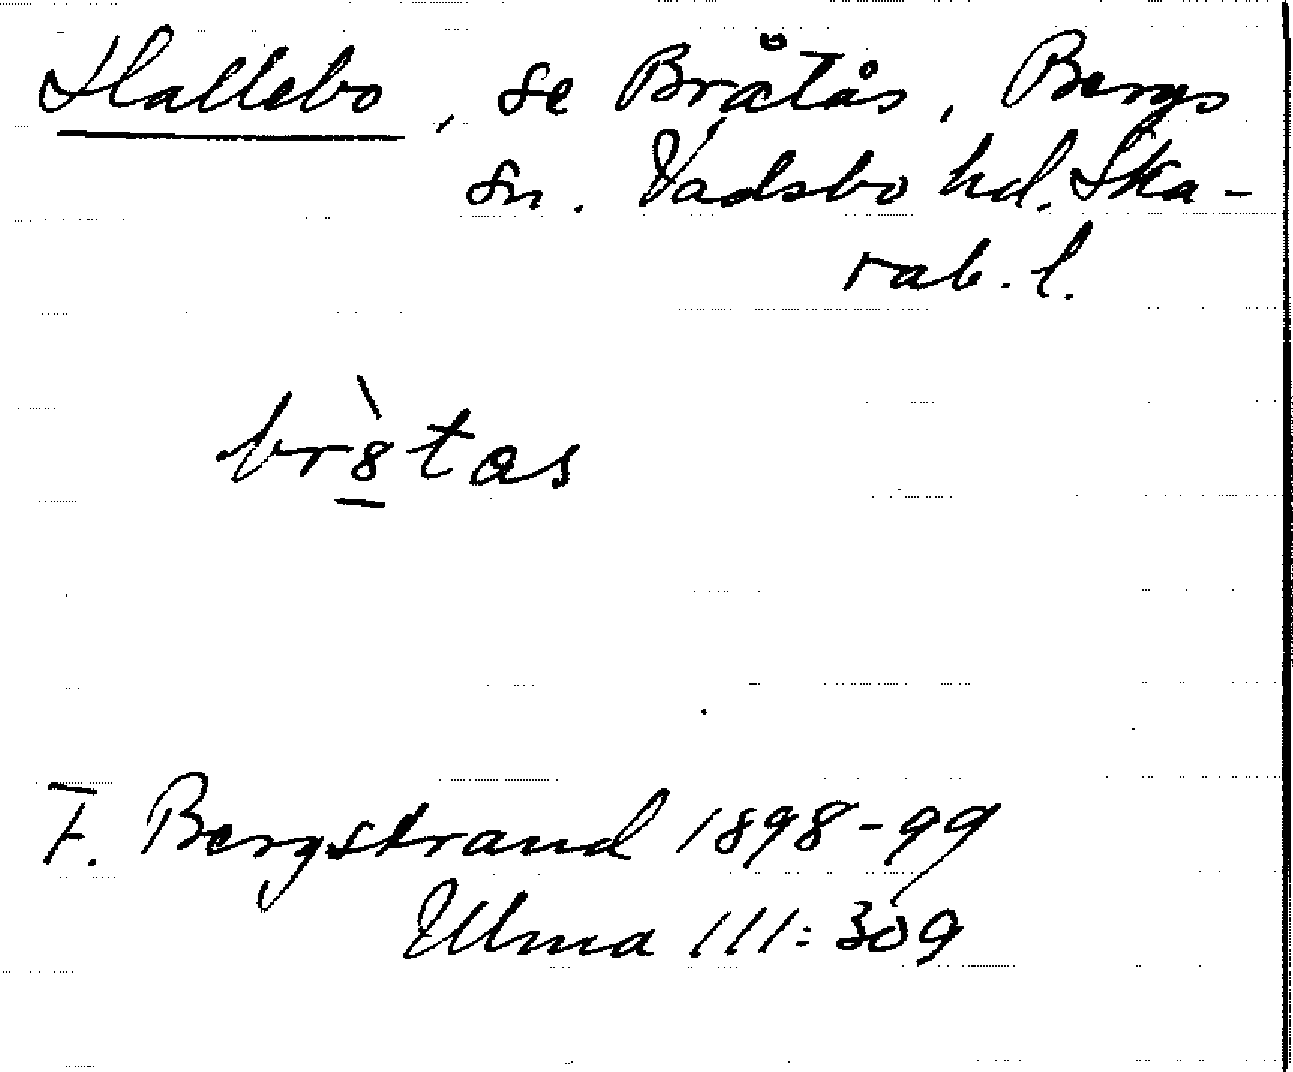 Hallebo, se Bråtås, Bergs
sn. Vadsbo hd. Ska-
rab. l.
br8̲̀tas
F. Bergstrand 1898-99
Ulma 111:309